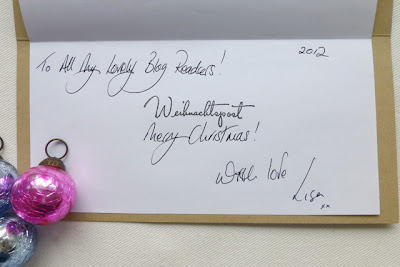 2012
To All My Lovely Blog Readers!
Weihnachtspost
Merry Christmas!
With love
Lisa
xx